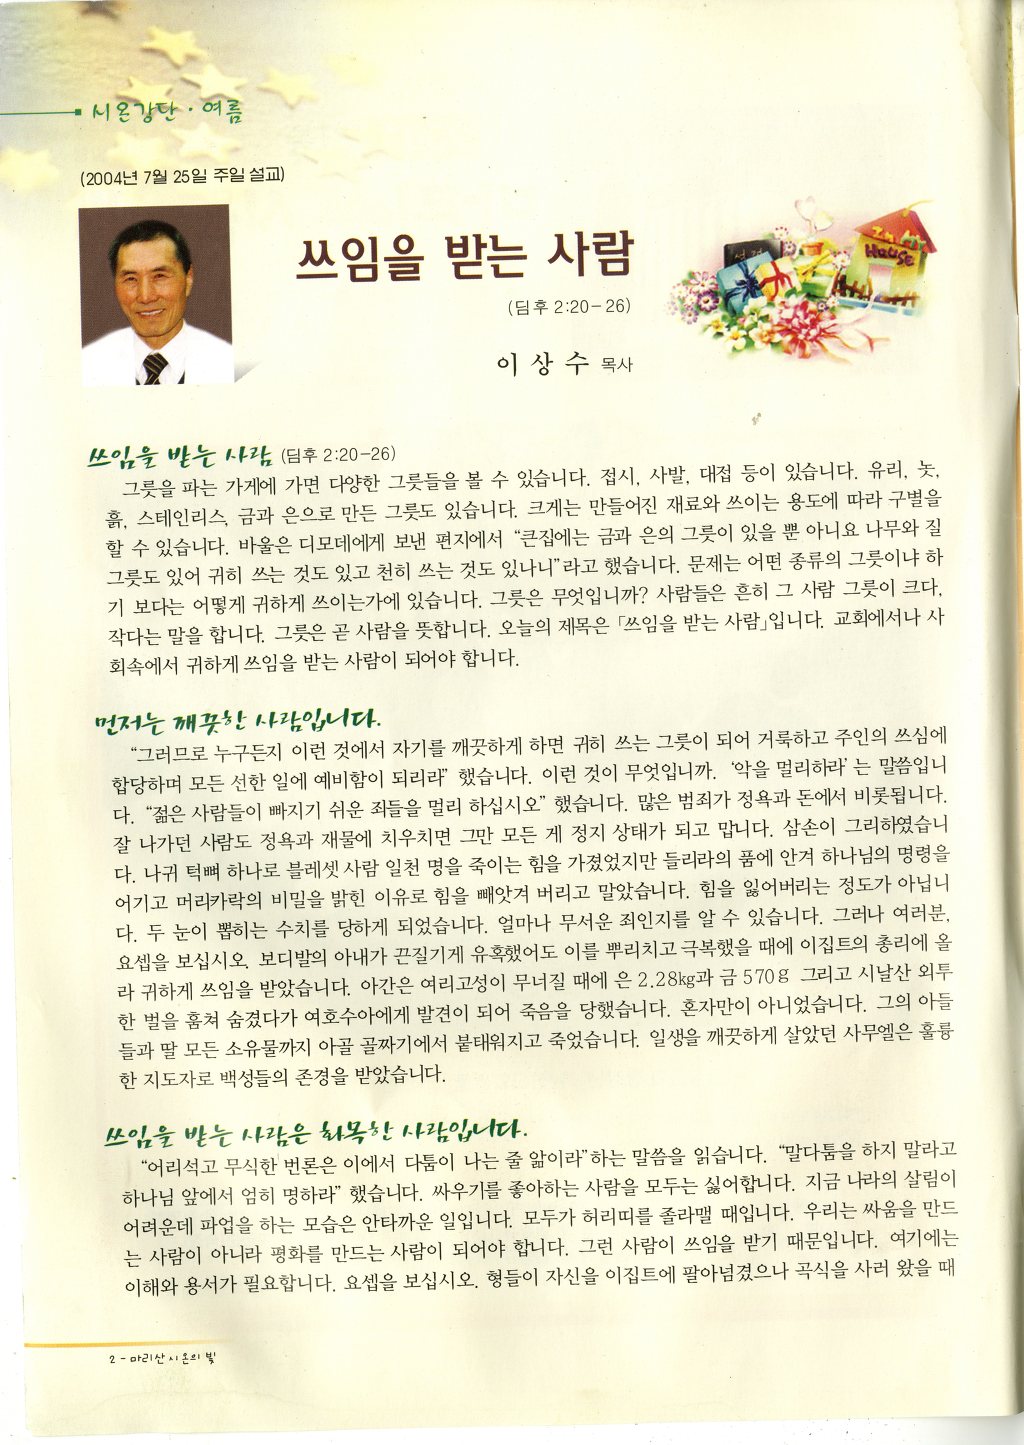 시온강단 · 여름
(2004년 7월 25일 주일 설교)
쓰임을 받는 사람
(딤후 2:20-26)
이 상 수 목사
성경
In My
House
쓰임을 받는 사람 (딤후 2:20-26)
그릇을 파는 가게에 가면 다양한 그릇들을 볼 수 있습니다. 접시, 사발, 대접 등이 있습니다. 유리, 놋,
흙, 스테인리스, 금과 은으로 만든 그릇도 있습니다. 크게는 만들어진 재료와 쓰이는 용도에 따라 구별을
할 수 있습니다. 바울은 디모데에게 보낸 편지에서 “큰집에는 금과 은의 그릇이 있을 뿐 아니요 나무와 질
그릇도 있어 귀히 쓰는 것도 있고 천히 쓰는 것도 있나니”라고 했습니다. 문제는 어떤 종류의 그릇이냐 하
기 보다는 어떻게 귀하게 쓰이는가에 있습니다. 그릇은 무엇입니까? 사람들은 흔히 그 사람 그릇이 크다,
작다는 말을 합니다. 그릇은 곧 사람을 뜻합니다. 오늘의 제목은 「쓰임을 받는 사람」입니다. 교회에서나 사
회속에서 귀하게 쓰임을 받는 사람이 되어야 합니다.
먼저는 깨끗한 사람입니다.
“그러므로 누구든지 이런 것에서 자기를 깨끗하게 하면 귀히 쓰는 그릇이 되어 거룩하고 주인의 쓰심에
합당하며 모든 선한 일에 예비함이 되리라” 했습니다. 이런 것이 무엇입니까. ‘악을 멀리하라’ 는 말씀입니
다. “젊은 사람들이 빠지기 쉬운 죄들을 멀리 하십시오” 했습니다. 많은 범죄가 정욕과 돈에서 비롯됩니다.
잘 나가던 사람도 정욕과 재물에 치우치면 그만 모든 게 정지 상태가 되고 맙니다. 삼손이 그리하였습니
다. 나귀 턱뼈 하나로 블레셋 사람 일천 명을 죽이는 힘을 가졌었지만 들리라의 품에 안겨 하나님의 명령을
어기고 머리카락의 비밀을 밝힌 이유로 힘을 빼앗겨 버리고 말았습니다. 힘을 잃어버리는 정도가 아닙니
다. 두 눈이 뽑히는 수치를 당하게 되었습니다. 얼마나 무서운 죄인지를 알 수 있습니다. 그러나 여러분,
요셉을 보십시오. 보디발의 아내가 끈질기게 유혹했어도 이를 뿌리치고 극복했을 때에 이집트의 총리에 올
라 귀하게 쓰임을 받았습니다. 아간은 여리고성이 무너질 때에 은 2.28kg과 금 570g 그리고 시날산 외투
한 벌을 훔쳐 숨겼다가 여호수아에게 발견이 되어 죽음을 당했습니다. 혼자만이 아니었습니다. 그의 아들
들과 딸 모든 소유물까지 아골 골짜기에서 불태워지고 죽었습니다. 일생을 깨끗하게 살았던 사무엘은 훌륭
한 지도자로 백성들의 존경을 받았습니다.
쓰임을 받는 사람은 화목한 사람입니다.
“어리석고 무식한 변론은 이에서 다툼이 나는 줄 앎이라”하는 말씀을 읽습니다. “말다툼을 하지 말라고
하나님 앞에서 엄히 명하라” 했습니다. 싸우기를 좋아하는 사람을 모두는 싫어합니다. 지금 나라의 살림이
어려운데 파업을 하는 모습은 안타까운 일입니다. 모두가 허리띠를 졸라맬 때입니다. 우리는 싸움을 만드
는 사람이 아니라 평화를 만드는 사람이 되어야 합니다. 그런 사람이 쓰임을 받기 때문입니다. 여기에는
이해와 용서가 필요합니다. 요셉을 보십시오. 형들이 자신을 이집트에 팔아넘겼으나 곡식을 사러 왔을 때
2 - 마리산 시온의 빛